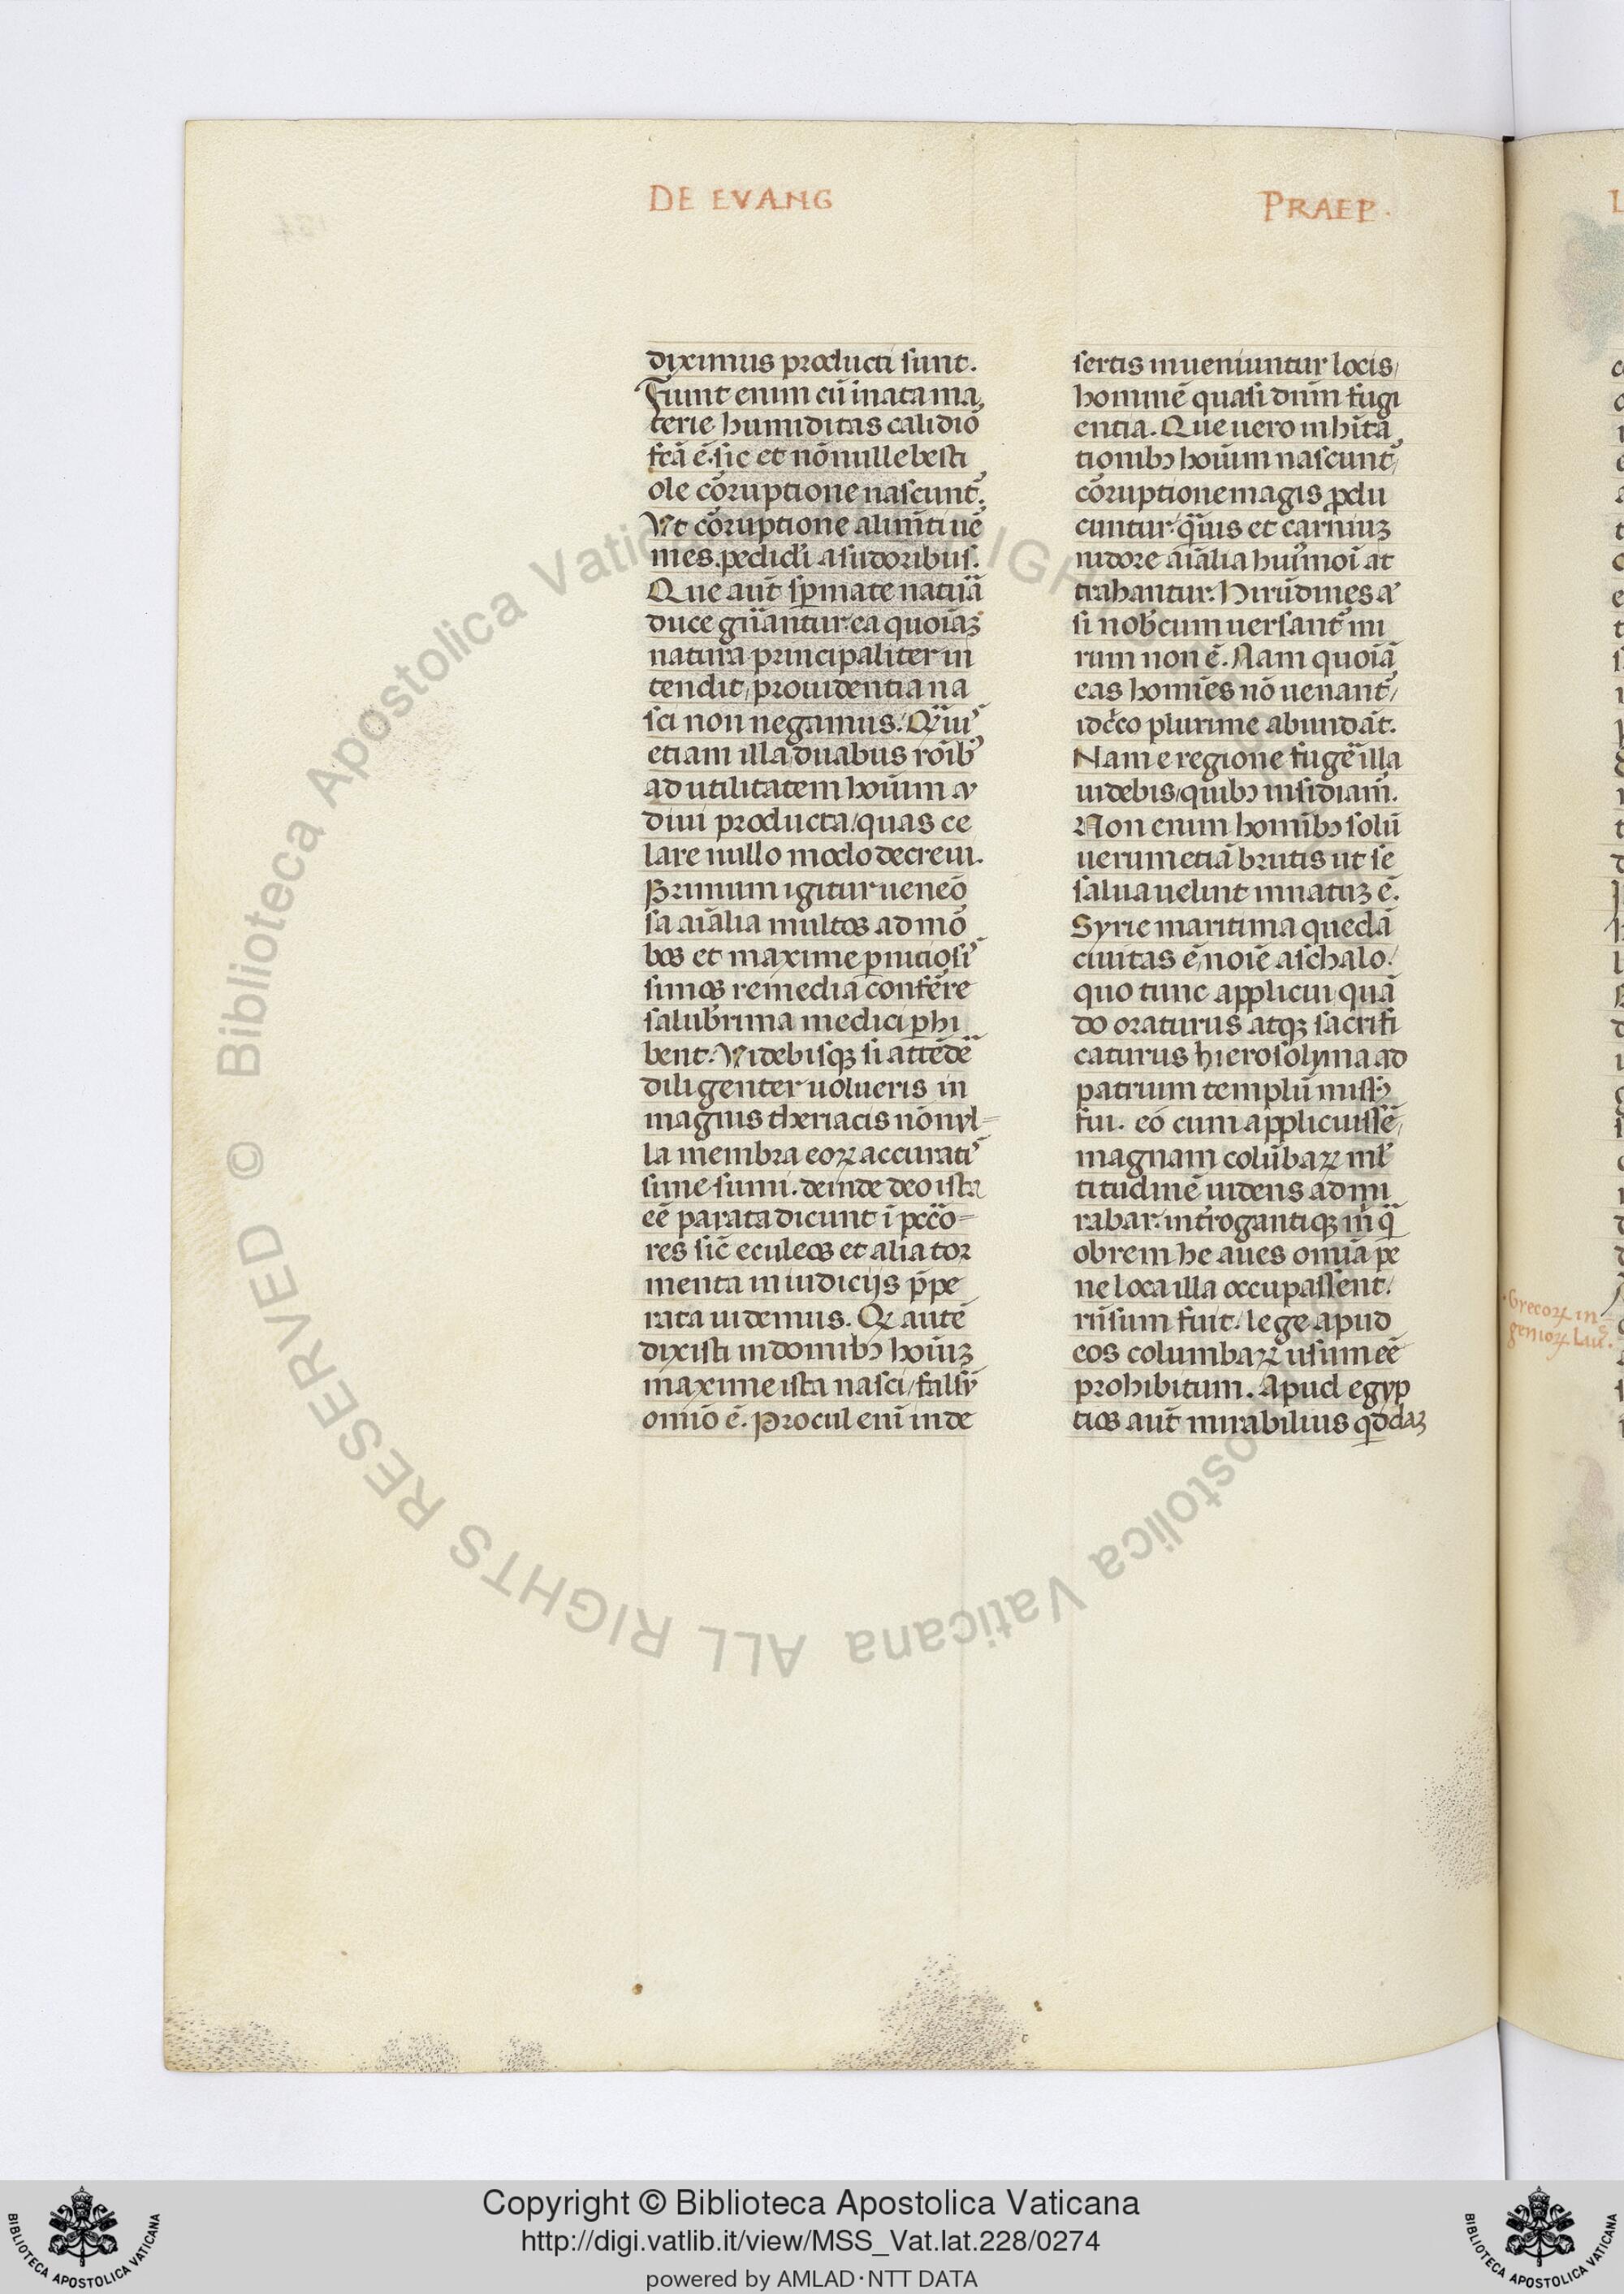 DE EVANG
PRAEP.
diximus producti sunt.
Fiunt enim cū inata ma
terie humiditas calidio
fcā ē. sic et nōnulle besti
ole cōruptione nascunt̄.
Vt cōruptione alimti uē
mes. pediculi a sudoribus.
Que aut̄ sꝑmate natura
duce gn̄antur. ea quoiāꝫ
natura principaliter in
tendit, prouidentia na
sci non negamus.
etiam illa duabus rōibꝰ
ad utilitatem hoīum a
diui producta, quas ce
lare nullo modo decreui.
Primum igitur uenēo
sa aīalia multos ad mō
bos et maxime ꝑnitiosi
simos remedia conferre
salubrrima medici ꝑhi
bent. Videbisqꝫ si attēde
diligenter uolueris in
magnis theriacis nōnyl-
la membra eoꝝ accurati
sime sumi. deinde deo ista
eē parata dicunt ī pccō-
res sic̄ eculeos et alia tor
menta in iudicijs p̄pe
rata uidemus. Qꝫ autē
dixisti in domibꝫ hoīuꝫ
maxime ista nasci, falsū
omīo ē. Procul enī in de
sertis inueniuntur locis,
hominē quasi dnm̄ fugi
entia. Que uero in hīta
tionibꝫ hoīum nascunt̄,
cōruptione magis ꝓdu
cuntur. q̄uis et carniuꝫ
nidore aīalia huꝰmoī at
trahantur. Hirūdines a
si nobcum uersant̄ mi
rum non ē. Nam quoiā
eas homīes nō uenant̄,
idcco plurime abundāt.
Nam e regione fugē illa
uidebis, quibꝫ insidiam̄.
Non enim homībꝫ solū
uerum etiā brutis ut se
salua uelint innatuꝫ ē.
Syrie maritima quedā
ciuitas ē, noīe aschalo.
quo tunc applicui quā
do oraturus atqꝫ sacrifi
caturus hierosolyma ad
patrium templū missꝰ
fui. eo cum applicuissē,
magnam colūbaꝝ ml̄
titudinē uidens admi
rabar. intrrogantiqꝫ m̄ q̄
obrem he aues omīa pe
ne loca illa occupassent.
rn̄sum fuit. lege apud
eos columbaꝝ usum eē
prohibitum. Apud egyp
tios aut̄ mirabilius qddaꝫ
Grecoꝝ in
genioꝝ Lau.
Copyright © Biblioteca Apostolica Vaticana
http://digi.vatlib.it/view/MSS_Vat.lat.228/0274
powered by AMLAD·NTT DATA
BIBLIOTECA APOSTOLICA VATICANA
BIBLIOTECA APOSTOLICA VATICANA
© Biblioteca Apostolica Vaticana ALL RIGHTS RESERVED